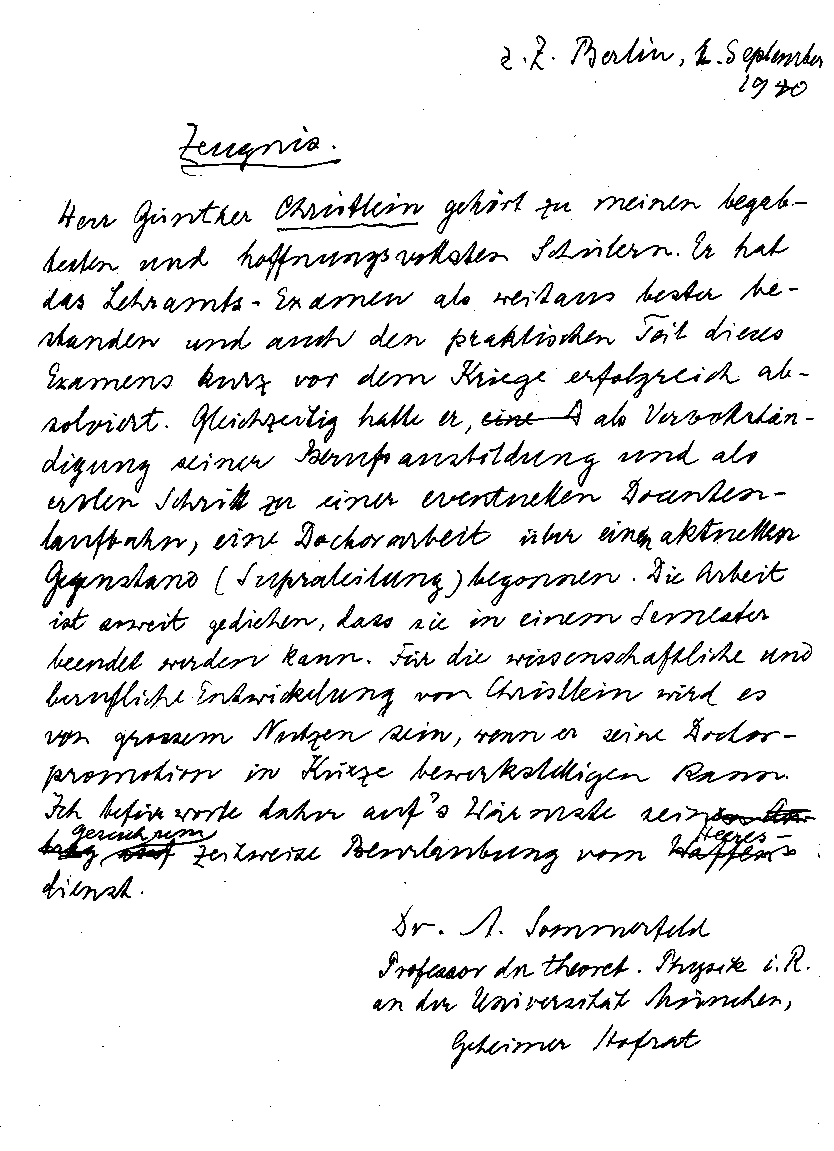 z. Z. Berlin, 2. September
1940
Zeugnis.
Herr Günther Christlein gehört zu meinen begab-
testen und hoffnungsvollsten Schülern. Er hat
das Lehramts-Examen als weitaus bester be-
standen und auch den praktischen Teil dieses
Examens kurz vor dem Kriege erfolgreich ab-
solviert. Gleichzeitig hatte er, eine A als Vervollstän-
digung seiner Berufsausbildung und als
ersten Schritt zu einer eventuellen Docenten-
laufbahn, eine Doctorarbeit über einen aktuellen
Gegenstand (Supraleitung) begonnen. Die Arbeit
ist soweit gediehen, dass sie in einem Semester
beendet werden kann. Für die wissenschaftliche und
berufliche Entwickelung von Christlein wird es
von grossem Nutzen sein, wenn er seine Doctor-
promotion in Kürze bewerkstelligen kann.
Ich befürworte daher auf's Wärmste sein
Gesuch um Heeres-
zeitweise Beurlaubung vom Waffen
dienst.
Dr. A. Sommerfeld
Professor der theoret. Physik i. R.
an der Universität München,
Geheimer Hofrat